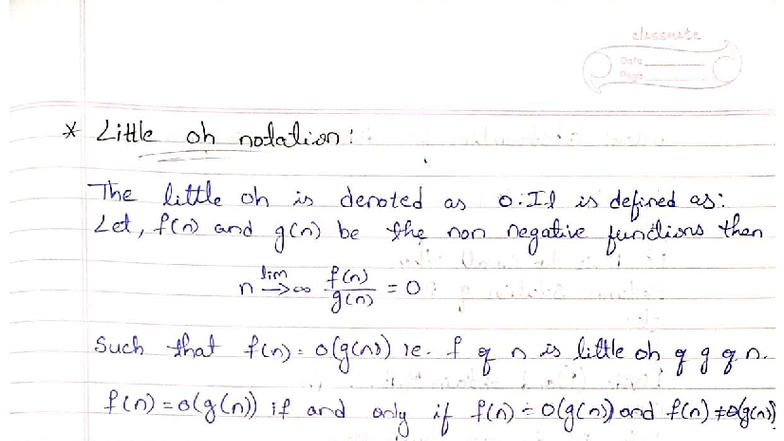 classmate
Date
Page
* Little oh notation:
The little oh is denoted as o. It is defined as:
Let, f(n) and g(n) be the non negative functions then
lim n→∞ f(n)/g(n) = 0
Such that f(n) = o(g(n)) ie. f of n is little oh of g of n.
f(n) = o(g(n)) if and only if f(n) = O(g(n)) and f(n) ≠ Θ(g(n))